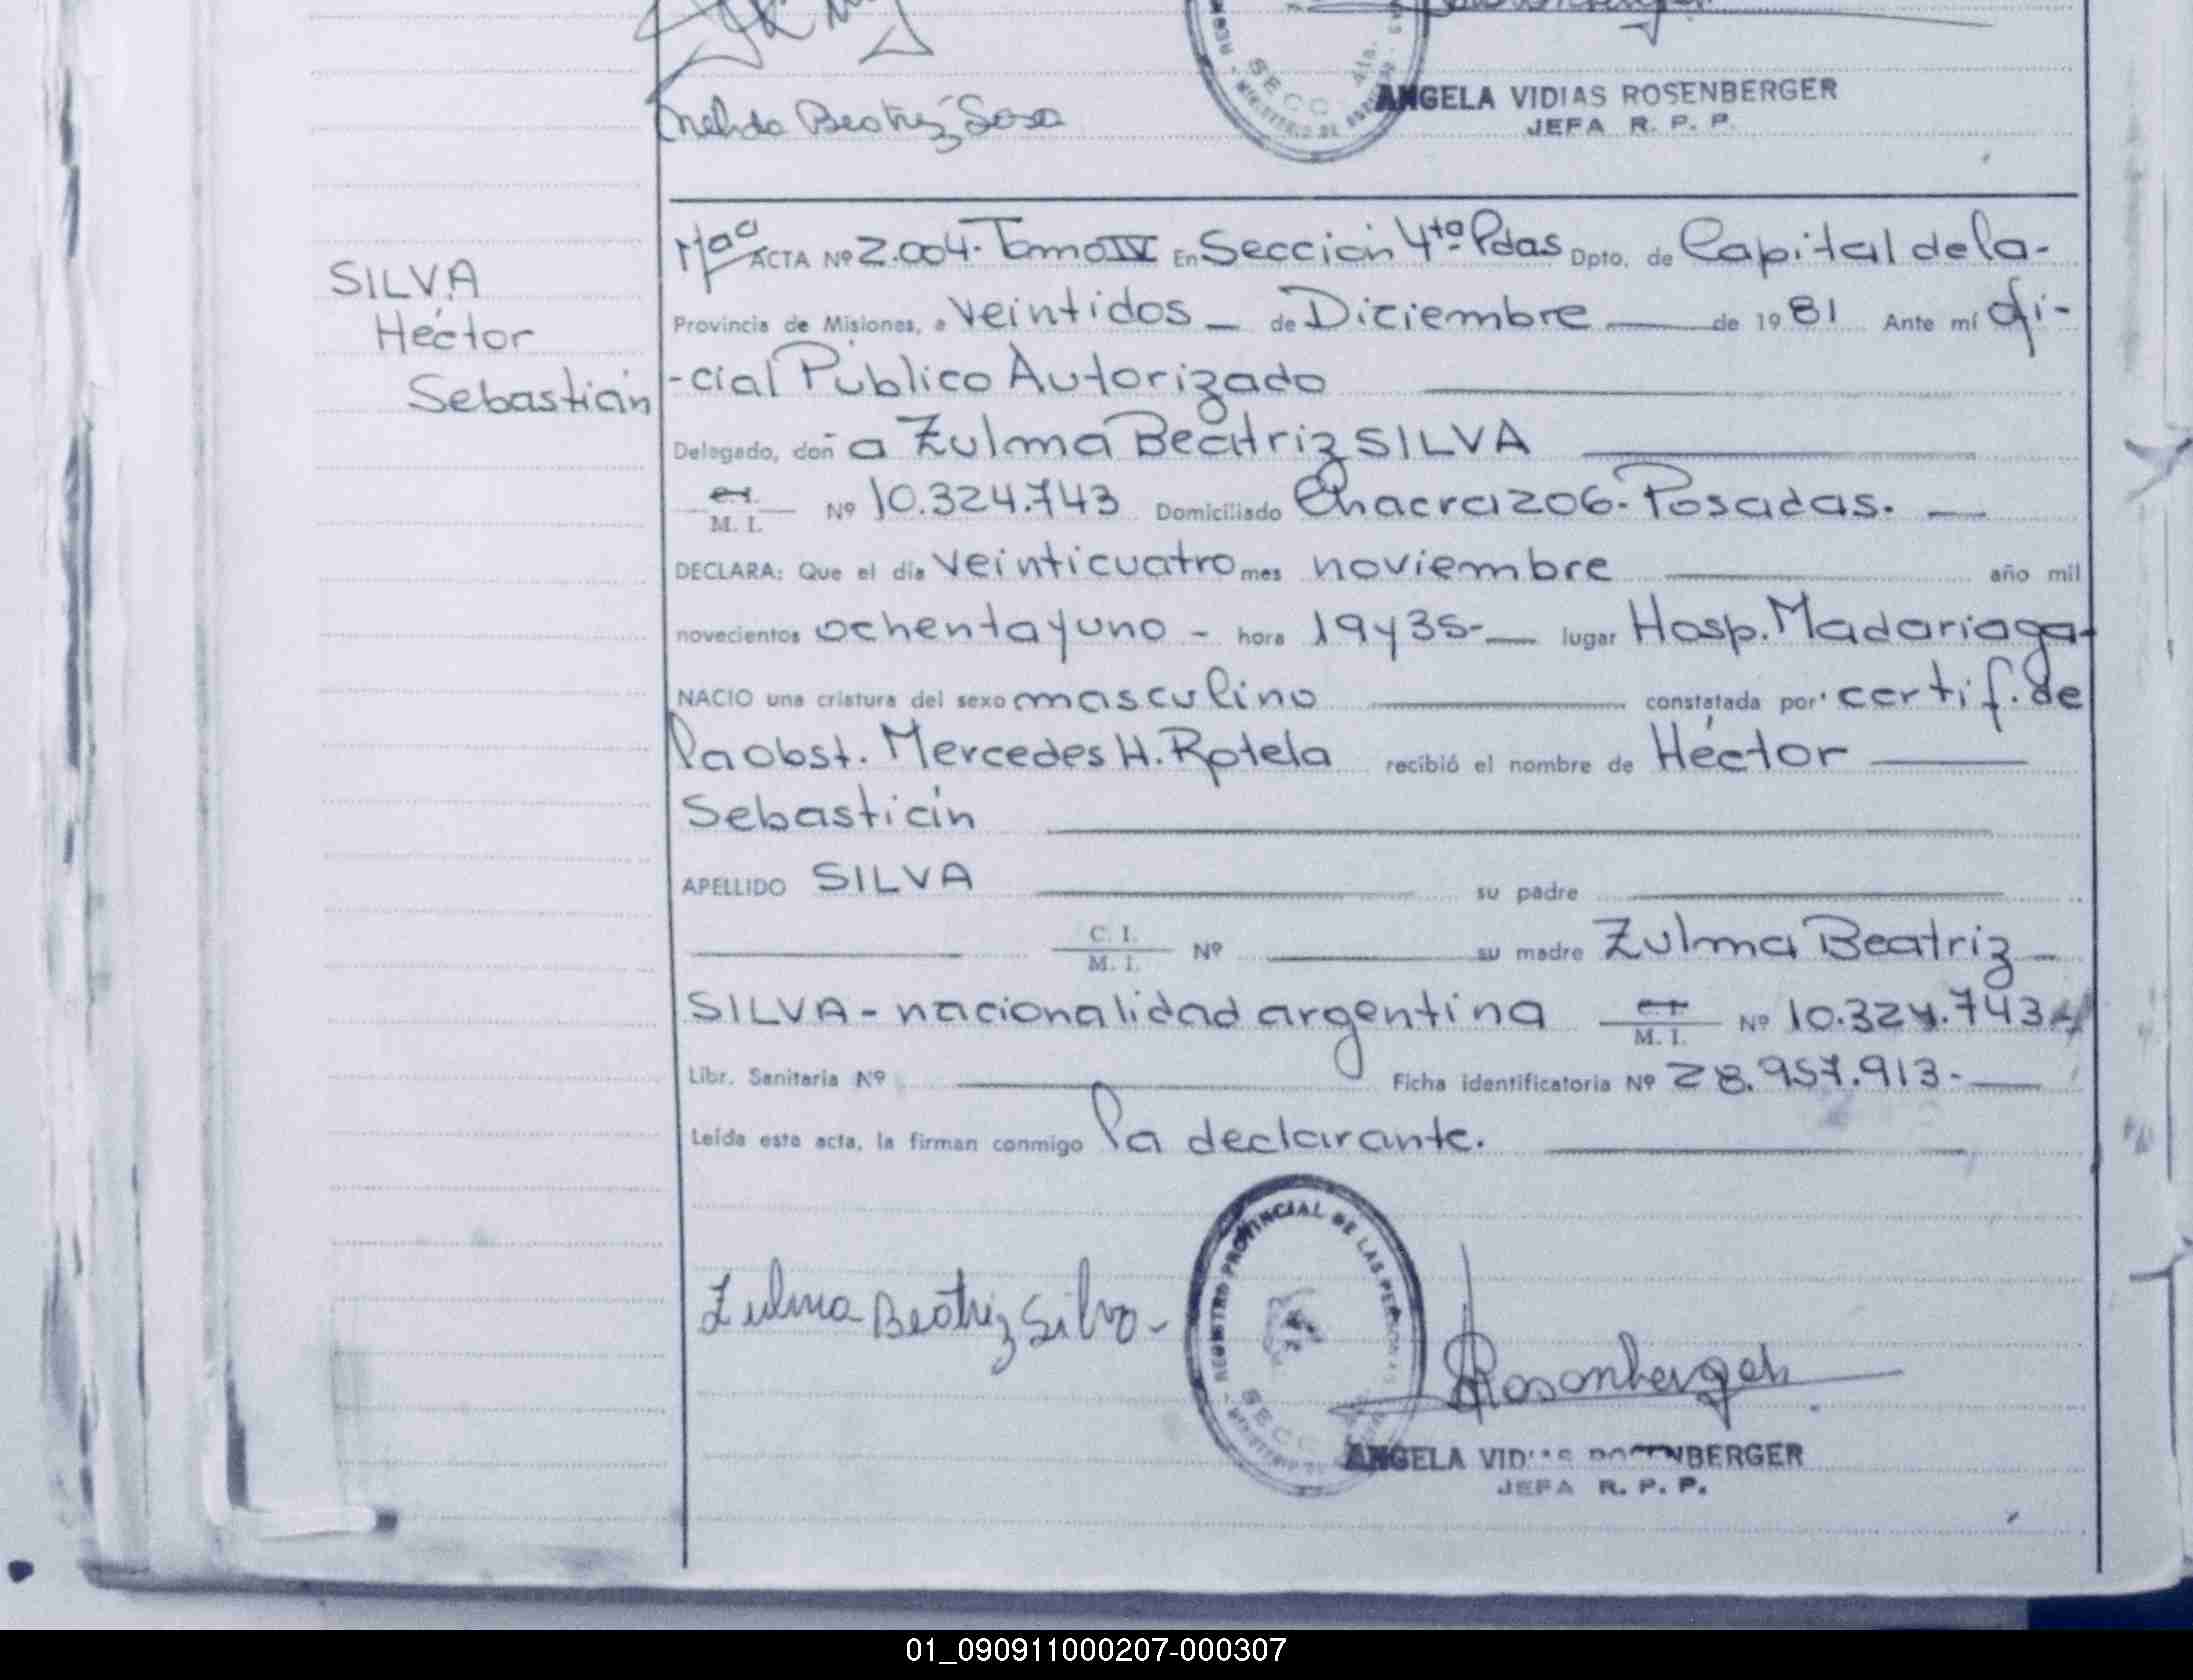 Imelda Beatriz Sosa
SECC
ANGELA VIDIAS ROSENBERGER
JEFA R. P. P.
SILVA
Héctor
Sebastián
ACTA Nº 2.004. Tomo IV En Sección 4ta Pdas Dpto. de Capital de la-
Provincia de Misiones, a Veintidos — de Diciembre — de 1981 Ante mí Ofi-
-cial Público Autorizado —
Delegado, doña Zulma Beatriz SILVA —
C.I. M. I. Nº 10.324.743 Domiciliado Chacra 206.- Posadas. —
DECLARA: Que el día Veinticuatro mes noviembre — año mil
novecientos ochenta y uno - hora 19 y 35- — lugar Hosp. Madariaga-
NACIO una criatura del sexo masculino — constatada por certif. de
la Obst. Mercedes H. Rotela recibió el nombre de Héctor —
Sebastián —
APELLIDO SILVA — su padre —
— C. I. M. I. Nº — su madre Zulma Beatriz —
SILVA - nacionalidad argentina C.I. M. I. Nº 10.324.743
Libr. Sanitaria Nº — Ficha identificatoria Nº 28.957.913- —
Leída esta acta, la firman conmigo la declarante. —
REGISTRO PROVINCIAL DE LAS PERSONAS
SECC
Zulma Beatriz Silva -
Rosenberger
ANGELA VIDIAS ROSENBERGER
JEFA R. P. P.
01_090911000207-000307